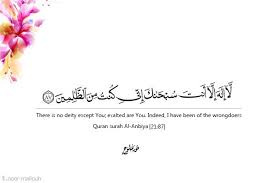 لَّا إِلَٰهَ إِلَّا أَنتَ سُبْحَٰنَكَ إِنِّي كُنتُ مِنَ الظَّٰلِمِينَ
There is no deity except You; exalted are You. Indeed, I have been of the wrongdoers
Quran surah Al-Anbiya [21:87]